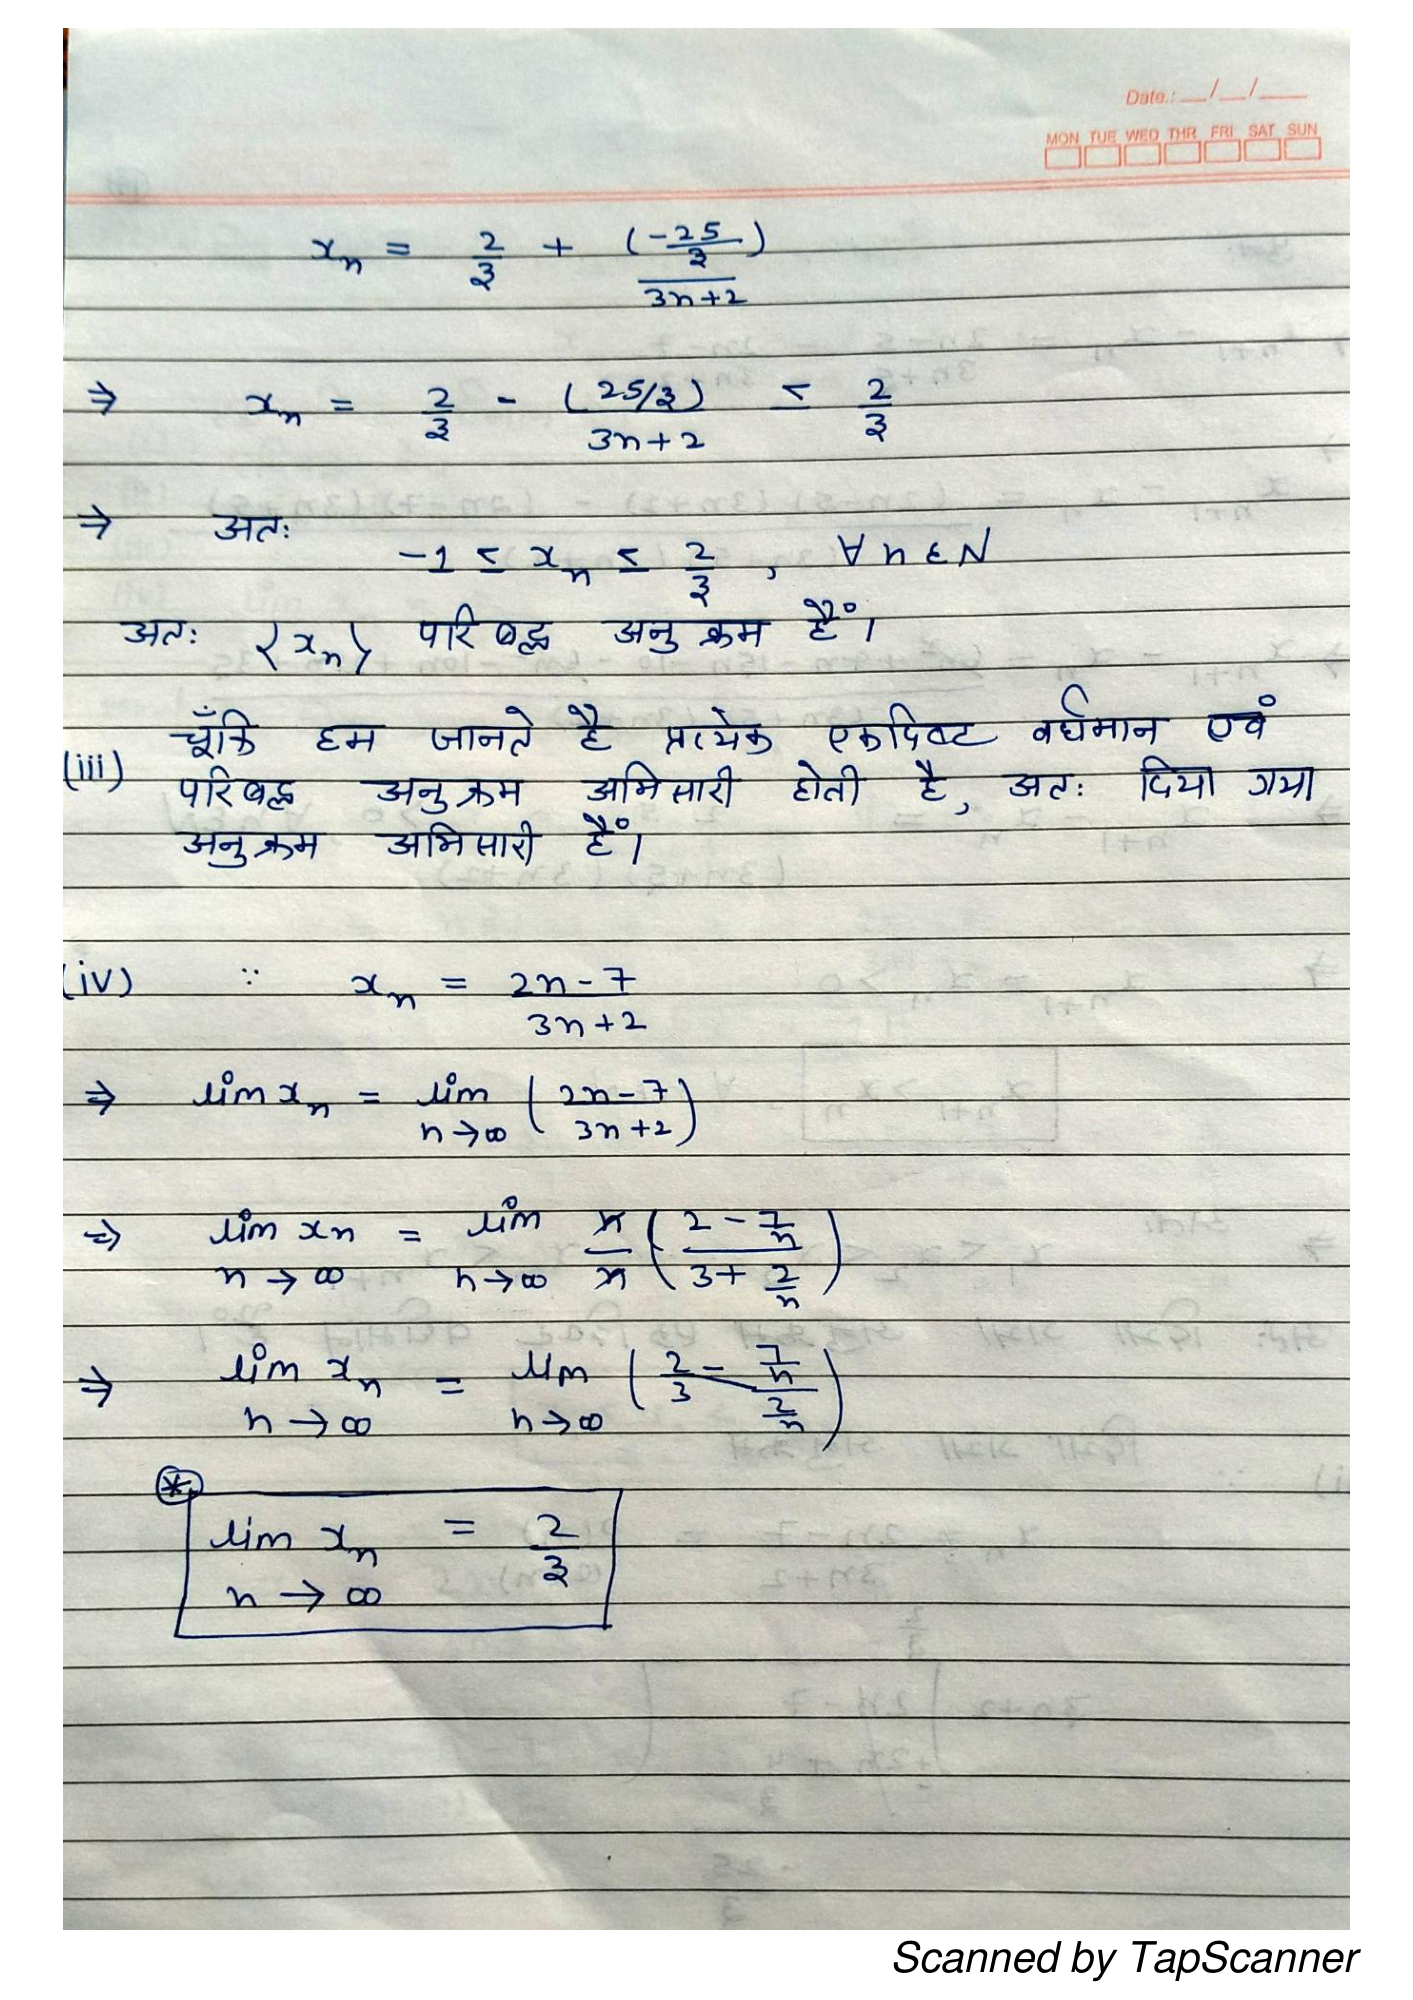 Date.: __/__/___
MON TUE WED THR FRI SAT SUN
xₙ = 2/3 + (-25/3)/(3n+2)
⇒ xₙ = 2/3 - (25/3)/(3n+2) ≤ 2/3
⇒ अतः
-1 ≤ xₙ ≤ 2/3, ∀ n ∈ N
अतः ⟨xₙ⟩ परिबद्ध अनुक्रम हैं।
(iii) चूँकि हम जानते है प्रत्येक एकदिष्ट वर्धमान एवं
परिबद्ध अनुक्रम अभिसारी होती है, अतः दिया गया
अनुक्रम अभिसारी हैं।
(iv) ∵ xₙ = (2n-7)/(3n+2)
⇒ lim xₙ = lim n→∞ ((2n-7)/(3n+2))
⇒ lim n→∞ xₙ = lim n→∞ n/n ((2 - 7/n)/(3 + 2/n))
⇒ lim n→∞ xₙ = lim n→∞ (2/3 - (7/n)/(2/n))
* lim n→∞ xₙ = 2/3
Scanned by TapScanner